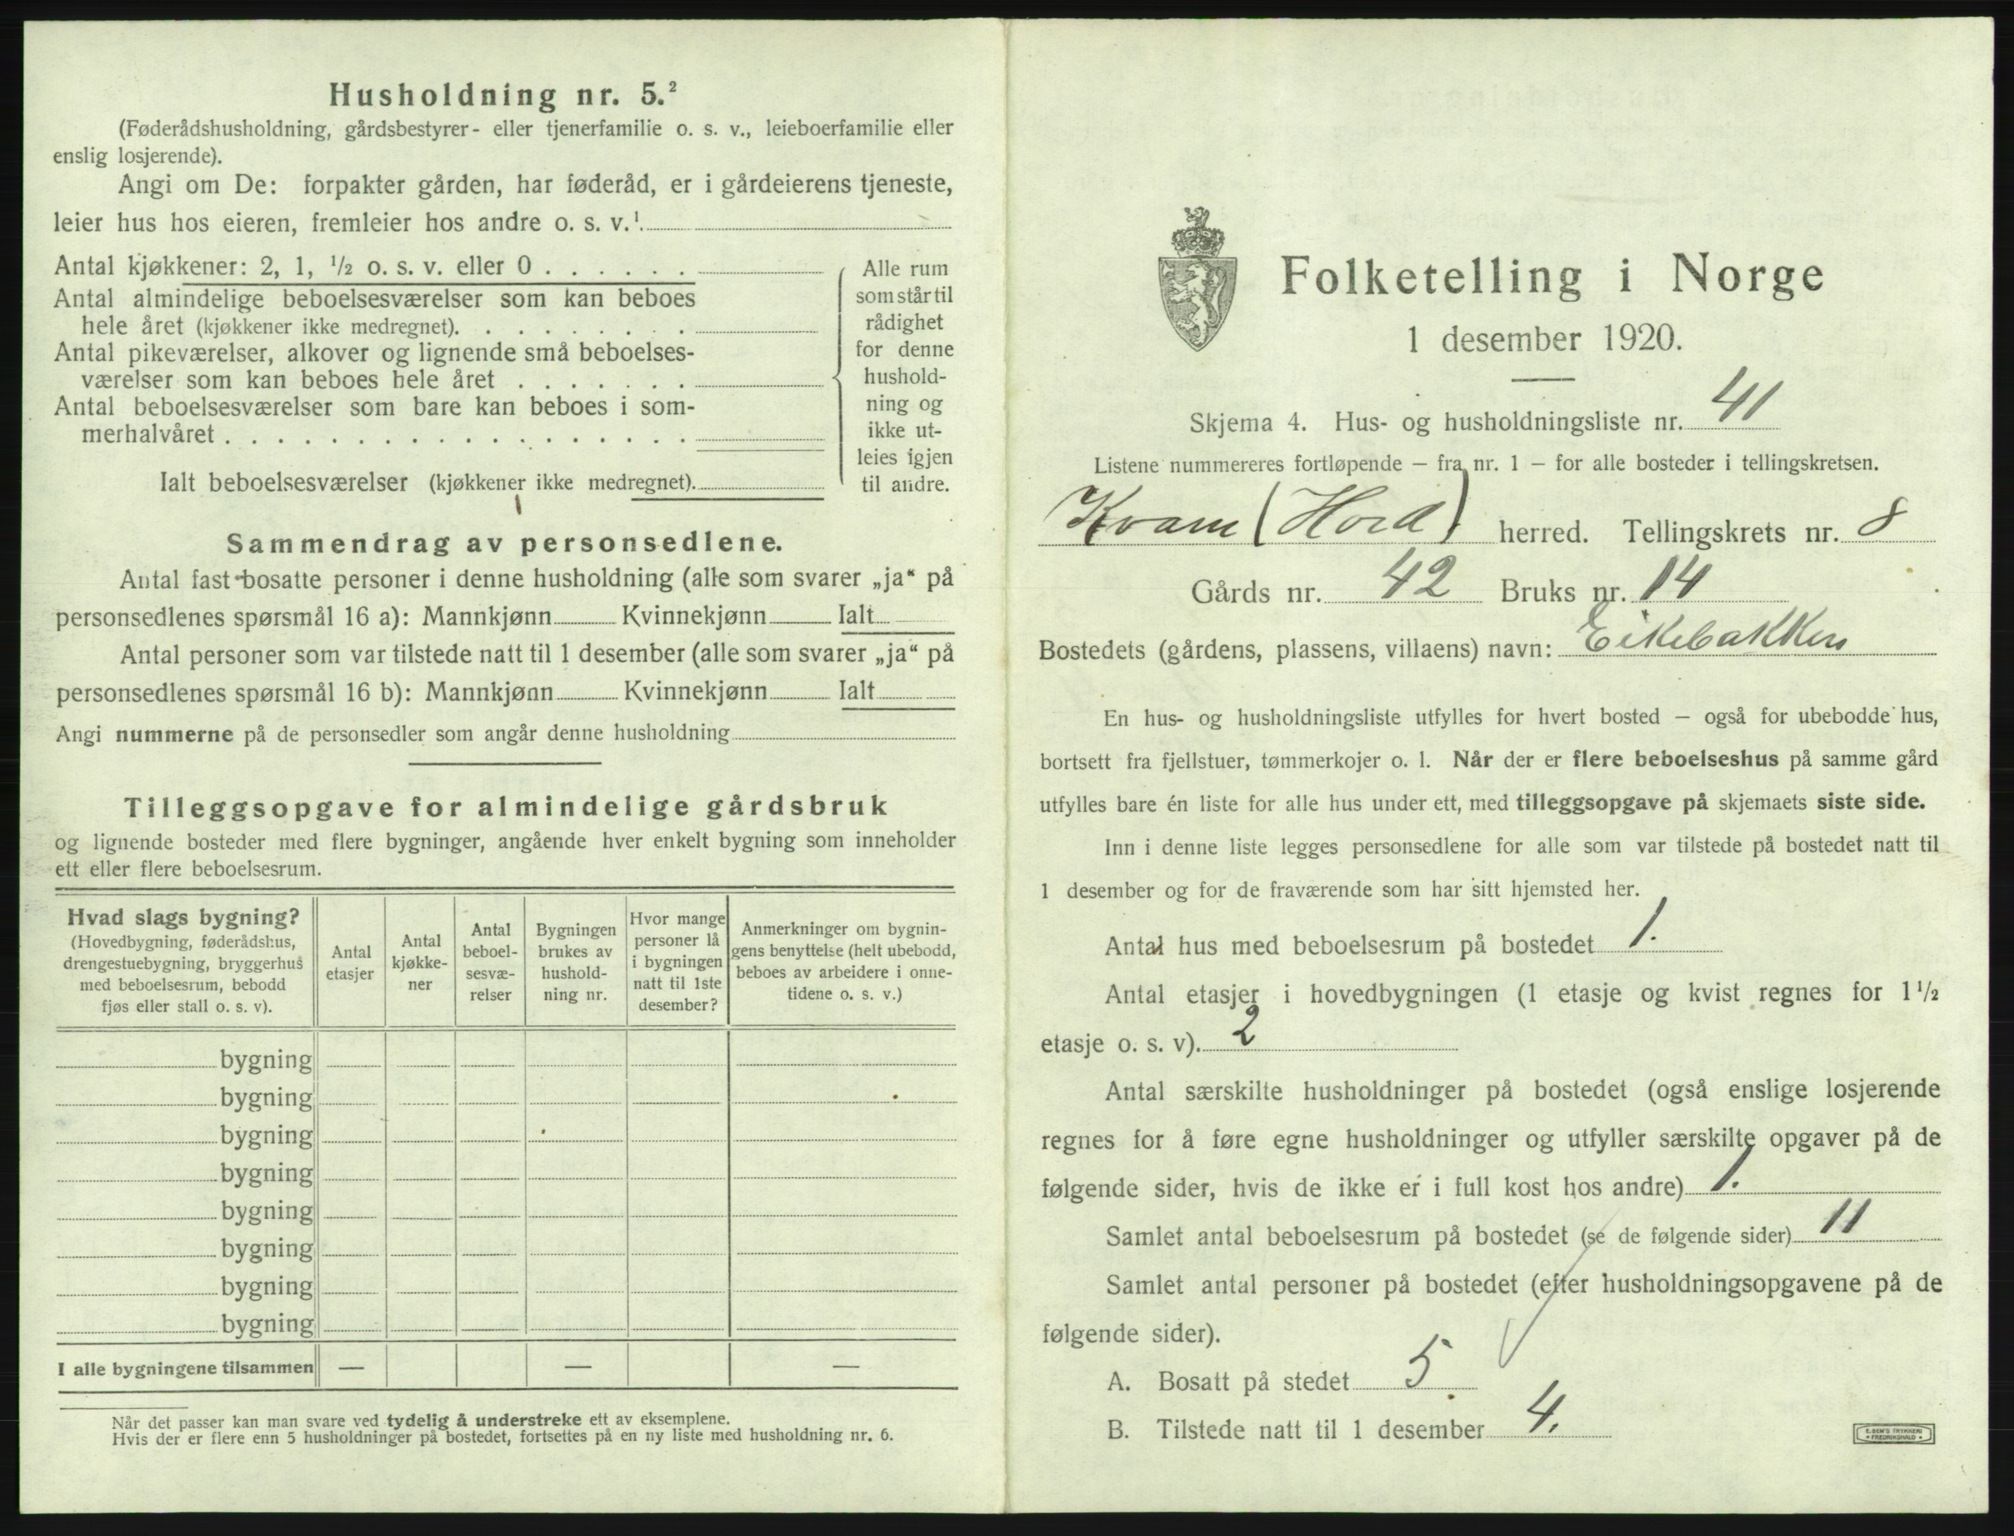 Husholdning nr. 5.²
(Føderådshusholdning, gårdsbestyrer- eller tjenerfamilie o. s. v., leieboerfamilie eller
enslig losjerende).
Angi om De: forpakter gården, har føderåd, er i gårdeierens tjeneste,
leier hus hos eieren, fremleier hos andre o. s. v.¹
Antal kjøkkener: 2, 1, ½ o. s. v. eller 0 . . . . . .
Antal almindelige beboelsesværelser som kan beboes
hele året (kjøkkener ikke medregnet). . . . . . . . .
Antal pikeværelser, alkover og lignende små beboelses-
værelser som kan beboes hele året . . . . . . .
Antal beboelsesværelser som bare kan beboes i som-
merhalvåret . . . . . . . . . . . . . . . . . .
Ialt beboelsesværelser (kjøkkener ikke medregnet).
Alle rum
som står til
rådighet
for denne
hushold-
ning og
ikke ut-
leies igjen
til andre.
Sammendrag av personsedlene.
Antal fast bosatte personer i denne husholdning (alle som svarer „ja“ på
personsedlenes spørsmål 16 a): Mannkjønn Kvinnekjønn Ialt
Antal personer som var tilstede natt til 1 desember (alle som svarer „ja“ på
personsedlenes spørsmål 16 b): Mannkjønn Kvinnekjønn Ialt
Angi nummerne på de personsedler som angår denne husholdning
Tilleggsopgave for almindelige gårdsbruk
og lignende bosteder med flere bygninger, angående hver enkelt bygning som inneholder
ett eller flere beboelsesrum.
Hvad slags bygning?
(Hovedbygning, føderådshus,
drengestuebygning, bryggerhus
med beboelsesrum, bebodd
fjøs eller stall o. s. v).
Antal
etasjer
Antal
kjøkke-
ner
Antal
beboel-
sesvæ-
relser
Bygningen
brukes av
hushold-
ning nr.
Hvor mange
personer lå
i bygningen
natt til 1ste
desember?
Anmerkninger om bygnin-
gens benyttelse (helt ubebodd,
beboes av arbeidere i onne-
tidene o. s. v.)
bygning
bygning
bygning
bygning
bygning
bygning
bygning
bygning
I alle bygningene tilsammen — — —
Når det passer kan man svare ved tydelig å understreke ett av eksemplene.
Hvis der er flere enn 5 husholdninger på bostedet, fortsettes på en ny liste med husholdning nr. 6.
Folketelling i Norge
1 desember 1920.
Skjema 4. Hus- og husholdningsliste nr. 41
Listene nummereres fortløpende — fra nr. 1 — for alle bosteder i tellingskretsen.
Kvam (Hord) herred. Tellingskrets nr. 8
Gårds nr. 42 Bruks nr. 14
Bostedets (gårdens, plassens, villaens) navn: Eikebakken
En hus- og husholdningsliste utfylles for hvert bosted — også for ubebodde hus,
bortsett fra fjellstuer, tømmerkojer o. l. Når der er flere beboelseshus på samme gård
utfylles bare én liste for alle hus under ett, med tilleggsopgave på skjemaets siste side.
Inn i denne liste legges personsedlene for alle som var tilstede på bostedet natt til
1 desember og for de fraværende som har sitt hjemsted her.
Antal hus med beboelsesrum på bostedet 1.
Antal etasjer i hovedbygningen (1 etasje og kvist regnes for 1 ½
etasje o. s. v). 2
Antal særskilte husholdninger på bostedet (også enslige losjerende
regnes for å føre egne husholdninger og utfyller særskilte opgaver på de
følgende sider, hvis de ikke er i full kost hos andre) 1.
Samlet antal beboelsesrum på bostedet (se de følgende sider) 11
Samlet antal personer på bostedet (efter husholdningsopgavene på de
følgende sider).
A. Bosatt på stedet 5
B. Tilstede natt til 1 desember 4.
E. SEM'S TRYKKERI
FREDRIKSHALD